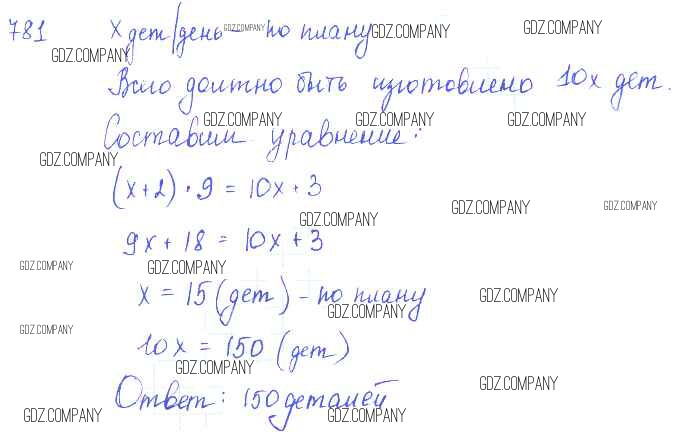 781 x дет/день - по плану
GDZ.COMPANY GDZ.COMPANY GDZ.COMPANY GDZ.COMPANY
Всго должно быть изготовлено 10x дет.
GDZ.COMPANY GDZ.COMPANY GDZ.COMPANY
Составим уравнение:
GDZ.COMPANY
(x+2) · 9 = 10x + 3
GDZ.COMPANY GDZ.COMPANY GDZ.COMPANY
9x + 18 = 10x + 3
GDZ.COMPANY GDZ.COMPANY
x = 15 (дет) - по плану
GDZ.COMPANY GDZ.COMPANY
GDZ.COMPANY
10x = 150 (дет)
GDZ.COMPANY
Ответ: 150 деталей
GDZ.COMPANY
GDZ.COMPANY GDZ.COMPANY